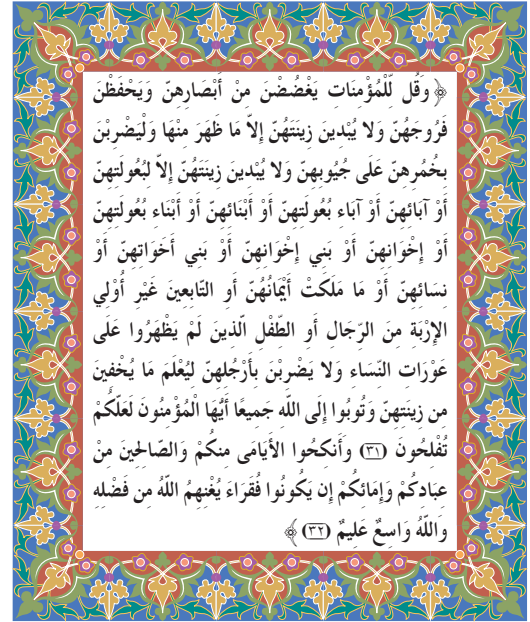 ﴿ وَقُل لِّلْمُؤْمِنَاتِ يَغْضُضْنَ مِنْ أَبْصَارِهِنَّ وَيَحْفَظْنَ
فُرُوجَهُنَّ وَلا يُبْدِينَ زِينَتَهُنَّ إِلاَّ مَا ظَهَرَ مِنْهَا وَلْيَضْرِبْنَ
بِخُمُرِهِنَّ عَلَى جُيُوبِهِنَّ وَلا يُبْدِينَ زِينَتَهُنَّ إِلاَّ لِبُعُولَتِهِنَّ
أَوْ آبَائِهِنَّ أَوْ آبَاءِ بُعُولَتِهِنَّ أَوْ أَبْنَائِهِنَّ أَوْ أَبْنَاءِ بُعُولَتِهِنَّ
أَوْ إِخْوَانِهِنَّ أَوْ بَنِي إِخْوَانِهِنَّ أَوْ بَنِي أَخَوَاتِهِنَّ أَوْ
نِسَائِهِنَّ أَوْ مَا مَلَكَتْ أَيْمَانُهُنَّ أَوِ التَّابِعِينَ غَيْرِ أُوْلِي
الإِرْبَةِ مِنَ الرِّجَالِ أَوِ الطِّفْلِ الَّذِينَ لَمْ يَظْهَرُوا عَلَى
عَوْرَاتِ النِّسَاءِ وَلا يَضْرِبْنَ بِأَرْجُلِهِنَّ لِيُعْلَمَ مَا يُخْفِينَ
مِن زِينَتِهِنَّ وَتُوبُوا إِلَى اللَّهِ جَمِيعًا أَيُّهَا الْمُؤْمِنُونَ لَعَلَّكُمْ
تُفْلِحُونَ (٣١) وَأَنكِحُوا الأَيَامَى مِنكُمْ وَالصَّالِحِينَ مِنْ
عِبَادِكُمْ وَإِمَائِكُمْ إِن يَكُونُوا فُقَرَاءَ يُغْنِهِمُ اللَّهُ مِن فَضْلِهِ
وَاللَّهُ وَاسِعٌ عَلِيمٌ (٣٢) ﴾